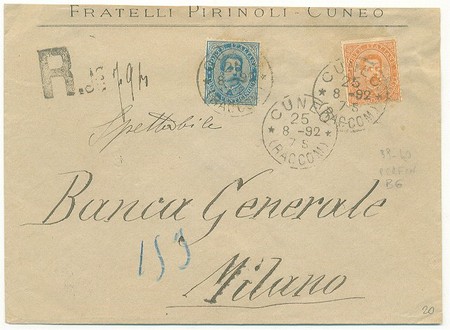 FRATELLI PIRINOLI - CUNEO
R.
CUNEO
25
8 -92
7 S
(RACCOM)
CUNEO
25
8 -92
7 S
(RACCOM)
Spettabile
Banca Generale
153
Milano
20